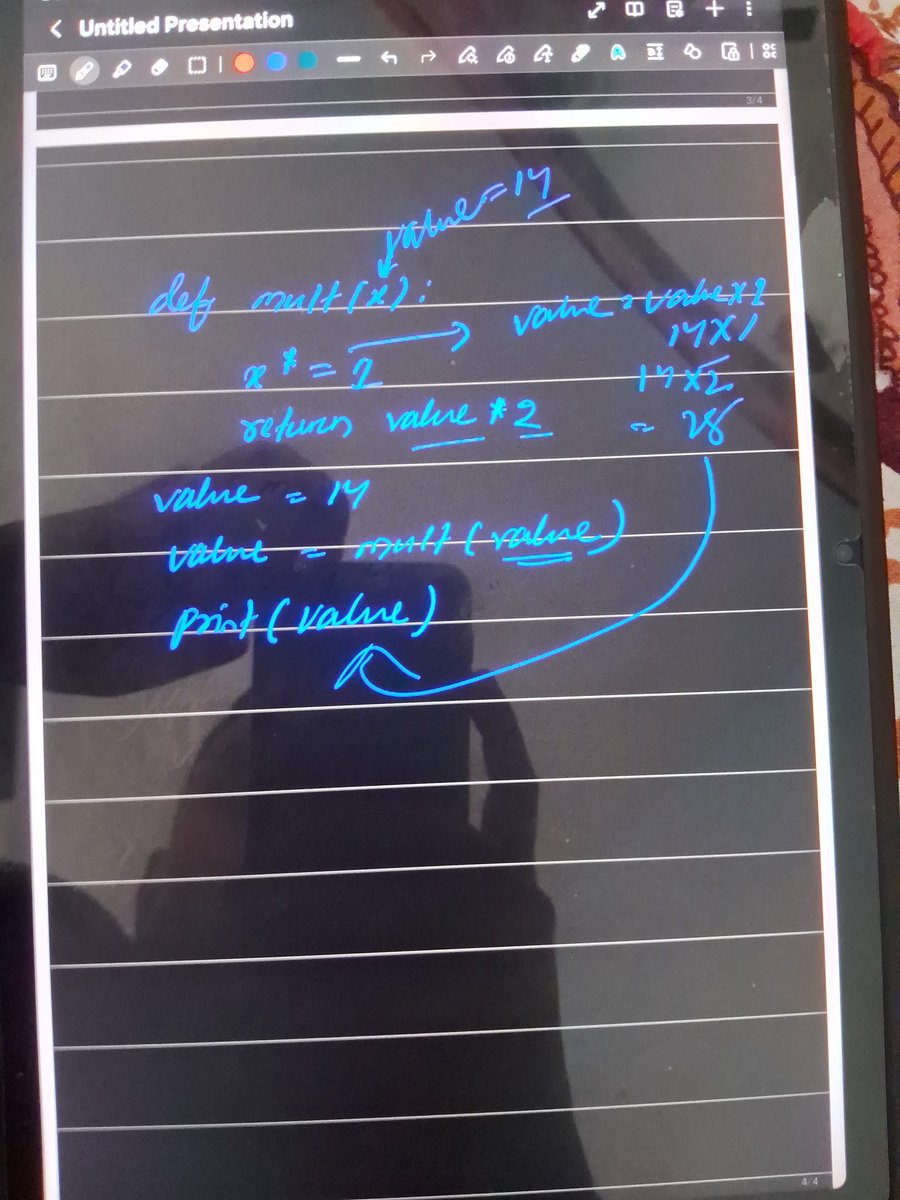 Untitled Presentation
3/4
value = 14
def mult(x):
value = value × 2
14 × 1
x * = 2
14 × 2
return value * 2
= 28
value = 14
value = mult(value)
print(value)
4/4